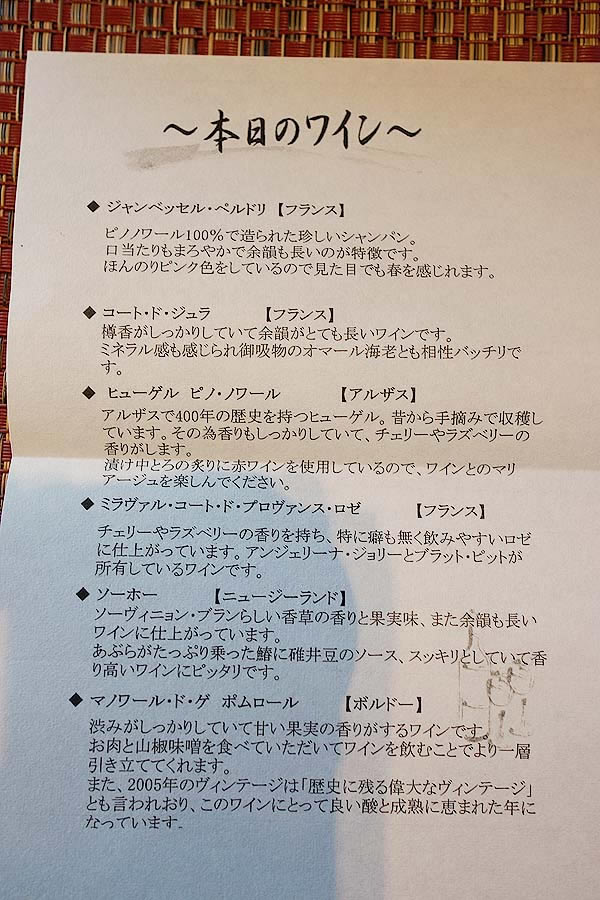 ～本日のワイン～
◆ ジャンベッセル・ペルドリ 【フランス】
ピノノワール100％で造られた珍しいシャンパン。
口当たりもまろやかで余韻も長いのが特徴です。
ほんのりピンク色をしているので見た目でも春を感じれます。
◆ コート・ド・ジュラ 【フランス】
樽香がしっかりしていて余韻がとても長いワインです。
ミネラル感も感じられ御吸物のオマール海老とも相性バッチリで
す。
◆ ヒューゲル ピノ・ノワール 【アルザス】
アルザスで400年の歴史を持つヒューゲル。昔から手摘みで収穫し
ています。その為香りもしっかりしていて、チェリーやラズベリーの
香りがします。
漬け中とろの炙りに赤ワインを使用しているので、ワインとのマリ
アージュを楽しんでください。
◆ ミラヴァル・コート・ド・プロヴァンス・ロゼ 【フランス】
チェリーやラズベリーの香りを持ち、特に癖も無く飲みやすいロゼ
に仕上がっています。アンジェリーナ・ジョリーとブラット・ピットが
所有しているワインです。
◆ ソーホー 【ニュージーランド】
ソーヴィニョン・ブランらしい香草の香りと果実味、また余韻も長い
ワインに仕上がっています。
あぶらがたっぷり乗った鰆に碓井豆のソース、スッキリとしていて香
り高いワインにピッタリです。
◆ マノワール・ド・ゲ ポムロール 【ボルドー】
渋みがしっかりしていて甘い果実の香りがするワインです。
お肉と山椒味噌を食べていただいてワインを飲むことでより一層
引き立ててくれます。
また、2005年のヴィンテージは「歴史に残る偉大なヴィンテージ」
とも言われおり、このワインにとって良い酸と成熟に恵まれた年に
なっています。